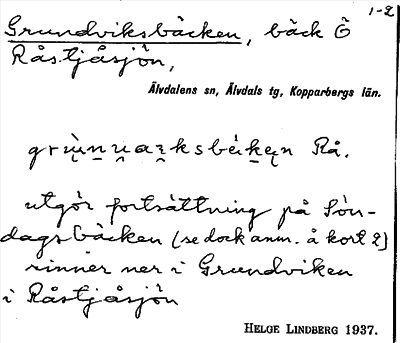 1-2
Grundviksbäcken, bäck Ö
Råstjåsjön,
Älvdalens sn, Älvdals tg, Kopparbergs län.
Rå.
utgör fortsättning på Sön-
dagsbäcken (se dock anm. å kort 2)
rinner ner i Grundviken
i Råstjåsjön
HELGE LINDBERG 1937.